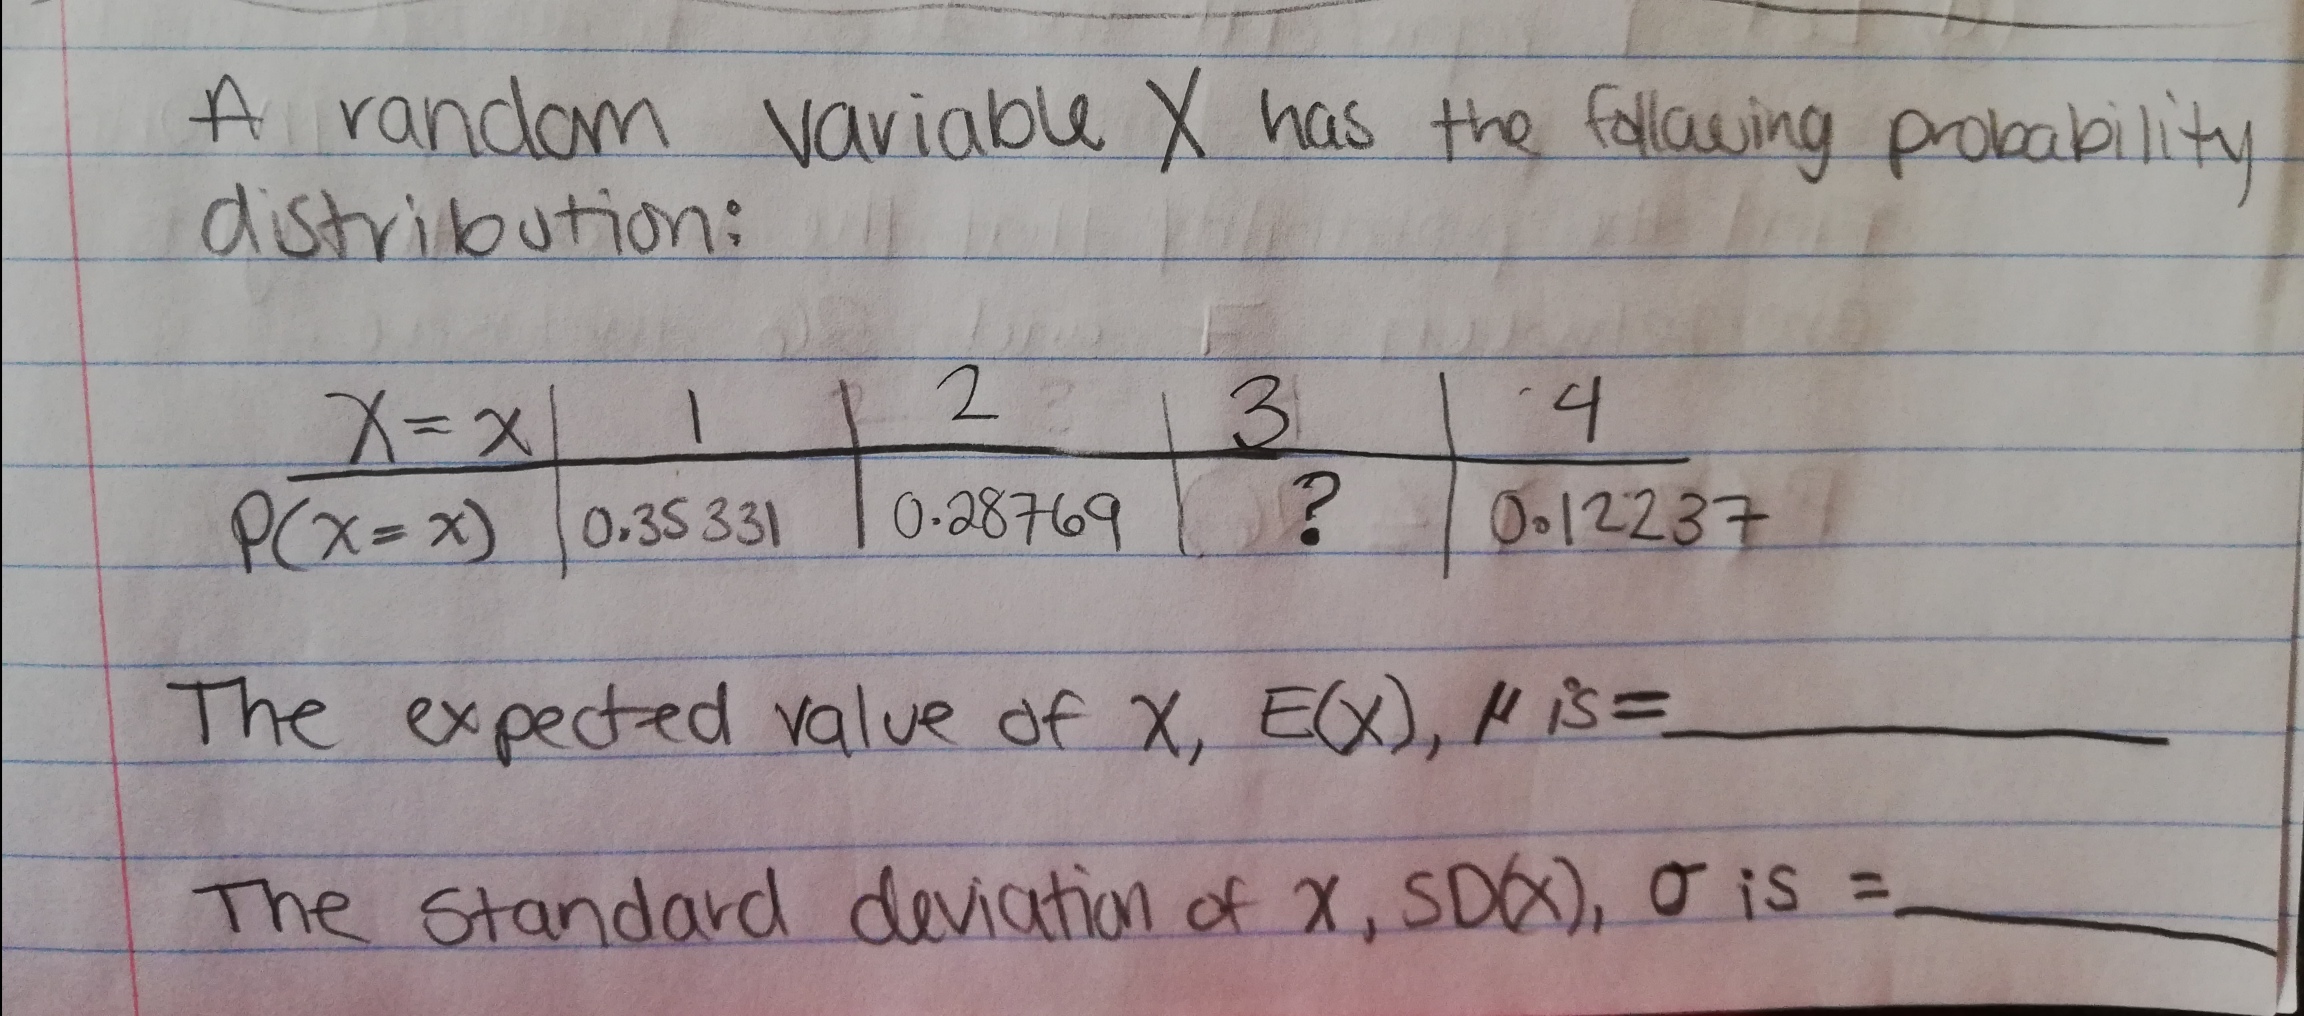 A random variable X has the following probability
distribution:
X = x | 1 | 2 | 3 | 4
P(X = x) | 0.35331 | 0.28769 | ? | 0.12237
The expected value of X, E(X), μ is = __________
The standard deviation of X, SD(X), σ is = __________